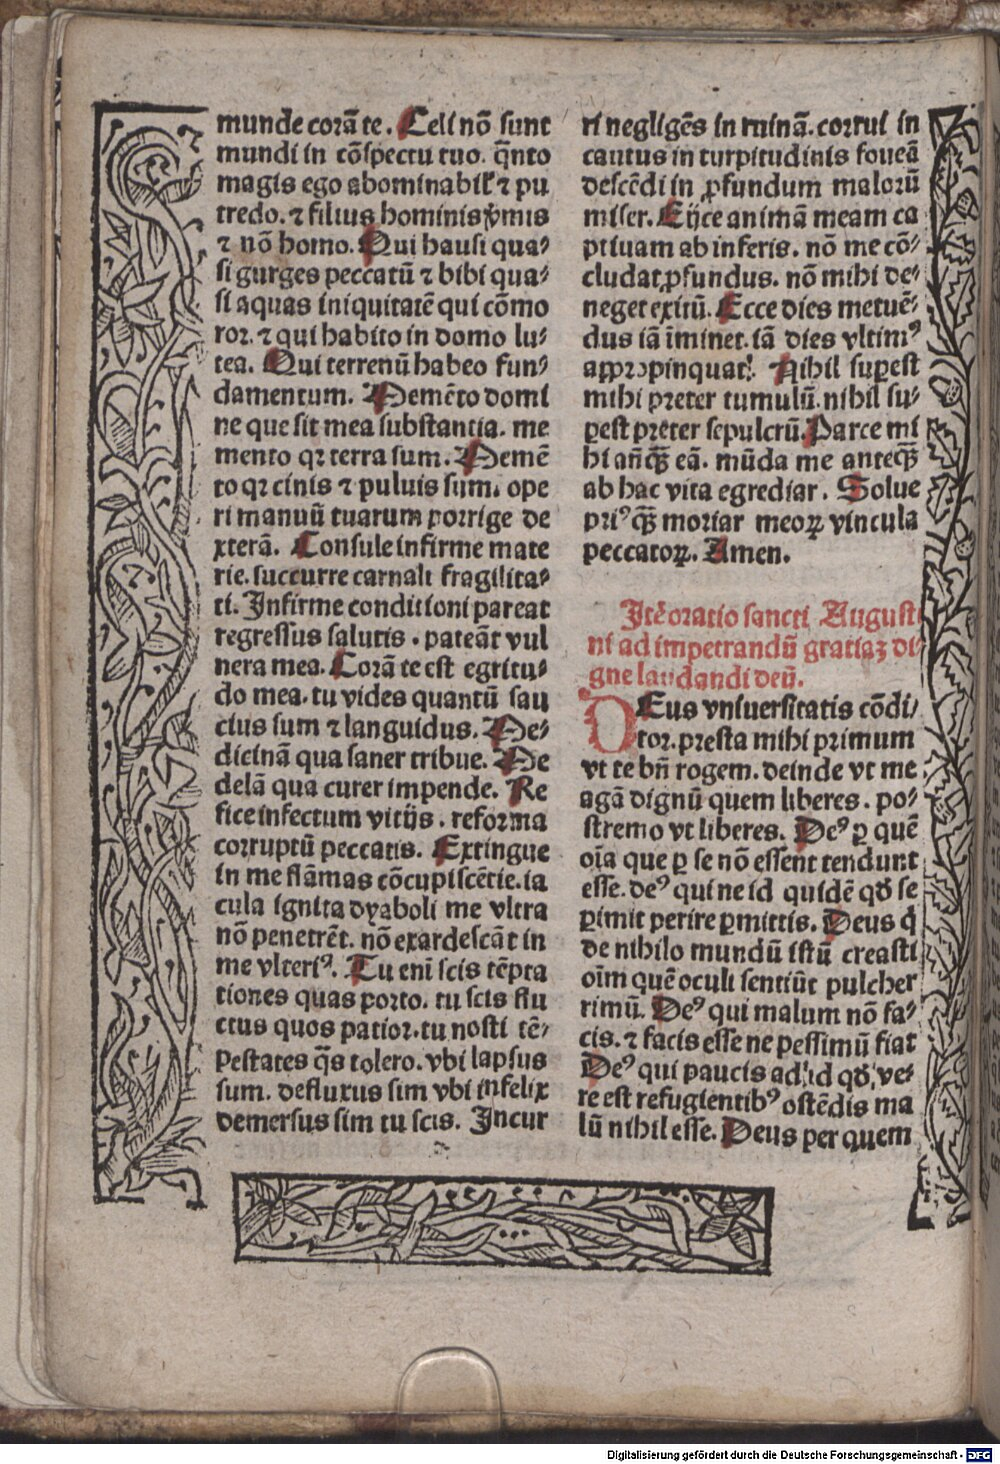 munde corā te. Celi nō sunt
mundi in cōspectu tuo. q̄nto
magis ego abominabil' ⁊ pu
tredo. ⁊ filius hominis v̄mis
⁊ nō homo. Qui hausi qua⸗
si gurges peccatū ⁊ bibi qua⸗
si aquas iniquitatē qui cōmo
ror. ⁊ qui habito in domo lu⸗
tea. Qui terrenū habeo fun⸗
damentum. Memēto domi
ne que sit mea substantia. me
mento qꝛ terra sum. Memē
to qꝛ cinis ⁊ puluis sum. ope
ri manuū tuarum porrige de
xterā. Consule infirme mate
rie. succurre carnali fragilita⸗
ti. Infirme conditioni pareat
regressus salutis. pateāt vul
nera mea. Corā te est egritu⸗
do mea. tu vides quantū sau
cius sum ⁊ languidus. Me⸗
dicinā qua saner tribue. Me
delā qua curer impende. Re
fice infectum vitijs. reforma
corruptū peccatis. Extingue
in me flāmas cōcupiscētie. ia
cula ignita dyaboli me vltra
nō penetrēt. nō exardescāt in
me vlteriꝰ. Tu eni scis tēpta
tiones quas porto. tu scis flu
ctus quos patior. tu nosti tē⸗
pestates q̄s tolero. vbi lapsus
sum. defluxus sim vbi infelix
demersus sim tu scis. Incur
ri negligēs in ruinā. corrui in
cautus in turpitudinis foueā
descēdi in ꝓfundum malorū
miser. Eijce animā meam ca
ptiuam ab inferis. nō me cō⸗
cludat ꝓfundus. nō mihi de⸗
neget exitū. Ecce dies metuē⸗
dus iā īminet. iā dies vltimꝰ
appropinquat. Nihil suꝑest
mihi preter tumulū. nihil su⸗
ꝑest preter sepulcrū. Parce mi
hi an̄qꝫ eā. mūda me anteqꝫ
ab hac vita egrediar. Solue
priꝰqꝫ moriar meoꝝ vincula
peccatoꝝ. Amen.
Itē oratio sancti Augusti
ni ad impetrandū gratiaꝫ di⸗
gne laudandi deū.
DEus vniuersitatis cōdi⸗
tor. presta mihi primum
vt te bn̄ rogem. deinde vt me
agā dignū quem liberes. po⸗
stremo vt liberes. Deꝰ ꝑ quē
oīa que ꝑ se nō essent tendunt
esse. deꝰ qui ne id quidē qđ se
ꝑimit perire ꝑmittis. Deus q̇
de nihilo mundū istū creasti
oīm quē oculi sentiūt pulcher
rimū. Deꝰ qui malum nō fa⸗
cis. ⁊ facis esse ne pessimū fiat
Deꝰ qui paucis ad id qđ ve⸗
re est refugientibꝰ ostēdis ma
lū nihil esse. Deus per quem
Digitalisierung gefördert durch die Deutsche Forschungsgemeinschaft - DFG